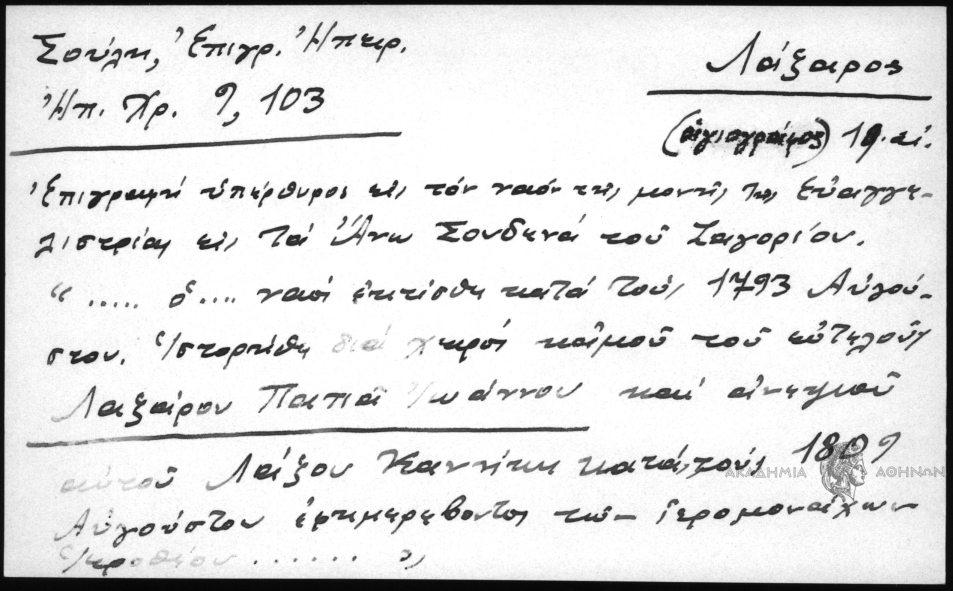 Σούλη, Ἐπιγρ. Ἠπειρ.
Ἠπ. Χρ. 9, 103
Λάζαρος
(ἁγιογράφος) 19. αἰ.
Ἐπιγραφή ὑπέρθυρος εἰς τόν ναόν τῆς μονῆς τῆς Εὐαγγε-
λιστρίας εἰς τά Ἄνω Σουδενά τοῦ Ζαγορίου.
"..... ὁ .... ναός ἐκτίσθη κατά τούς 1793 Αὐγού-
στου. Ἱστορήθη διά χειρός κἀμοῦ τοῦ εὐτελοῦς
Λαζάρου Παπᾶ Ἰωάννου καί ἀνεψιοῦ
αὐτοῦ Λάζου κατά τούς 1809
Αὐγούστου ἐφημερεβοντος τῶν ἱερομονάχων
Ἱεροθέου ...... "
ΑΚΑΔΗΜΙΑ ΑΘΗΝΩΝ